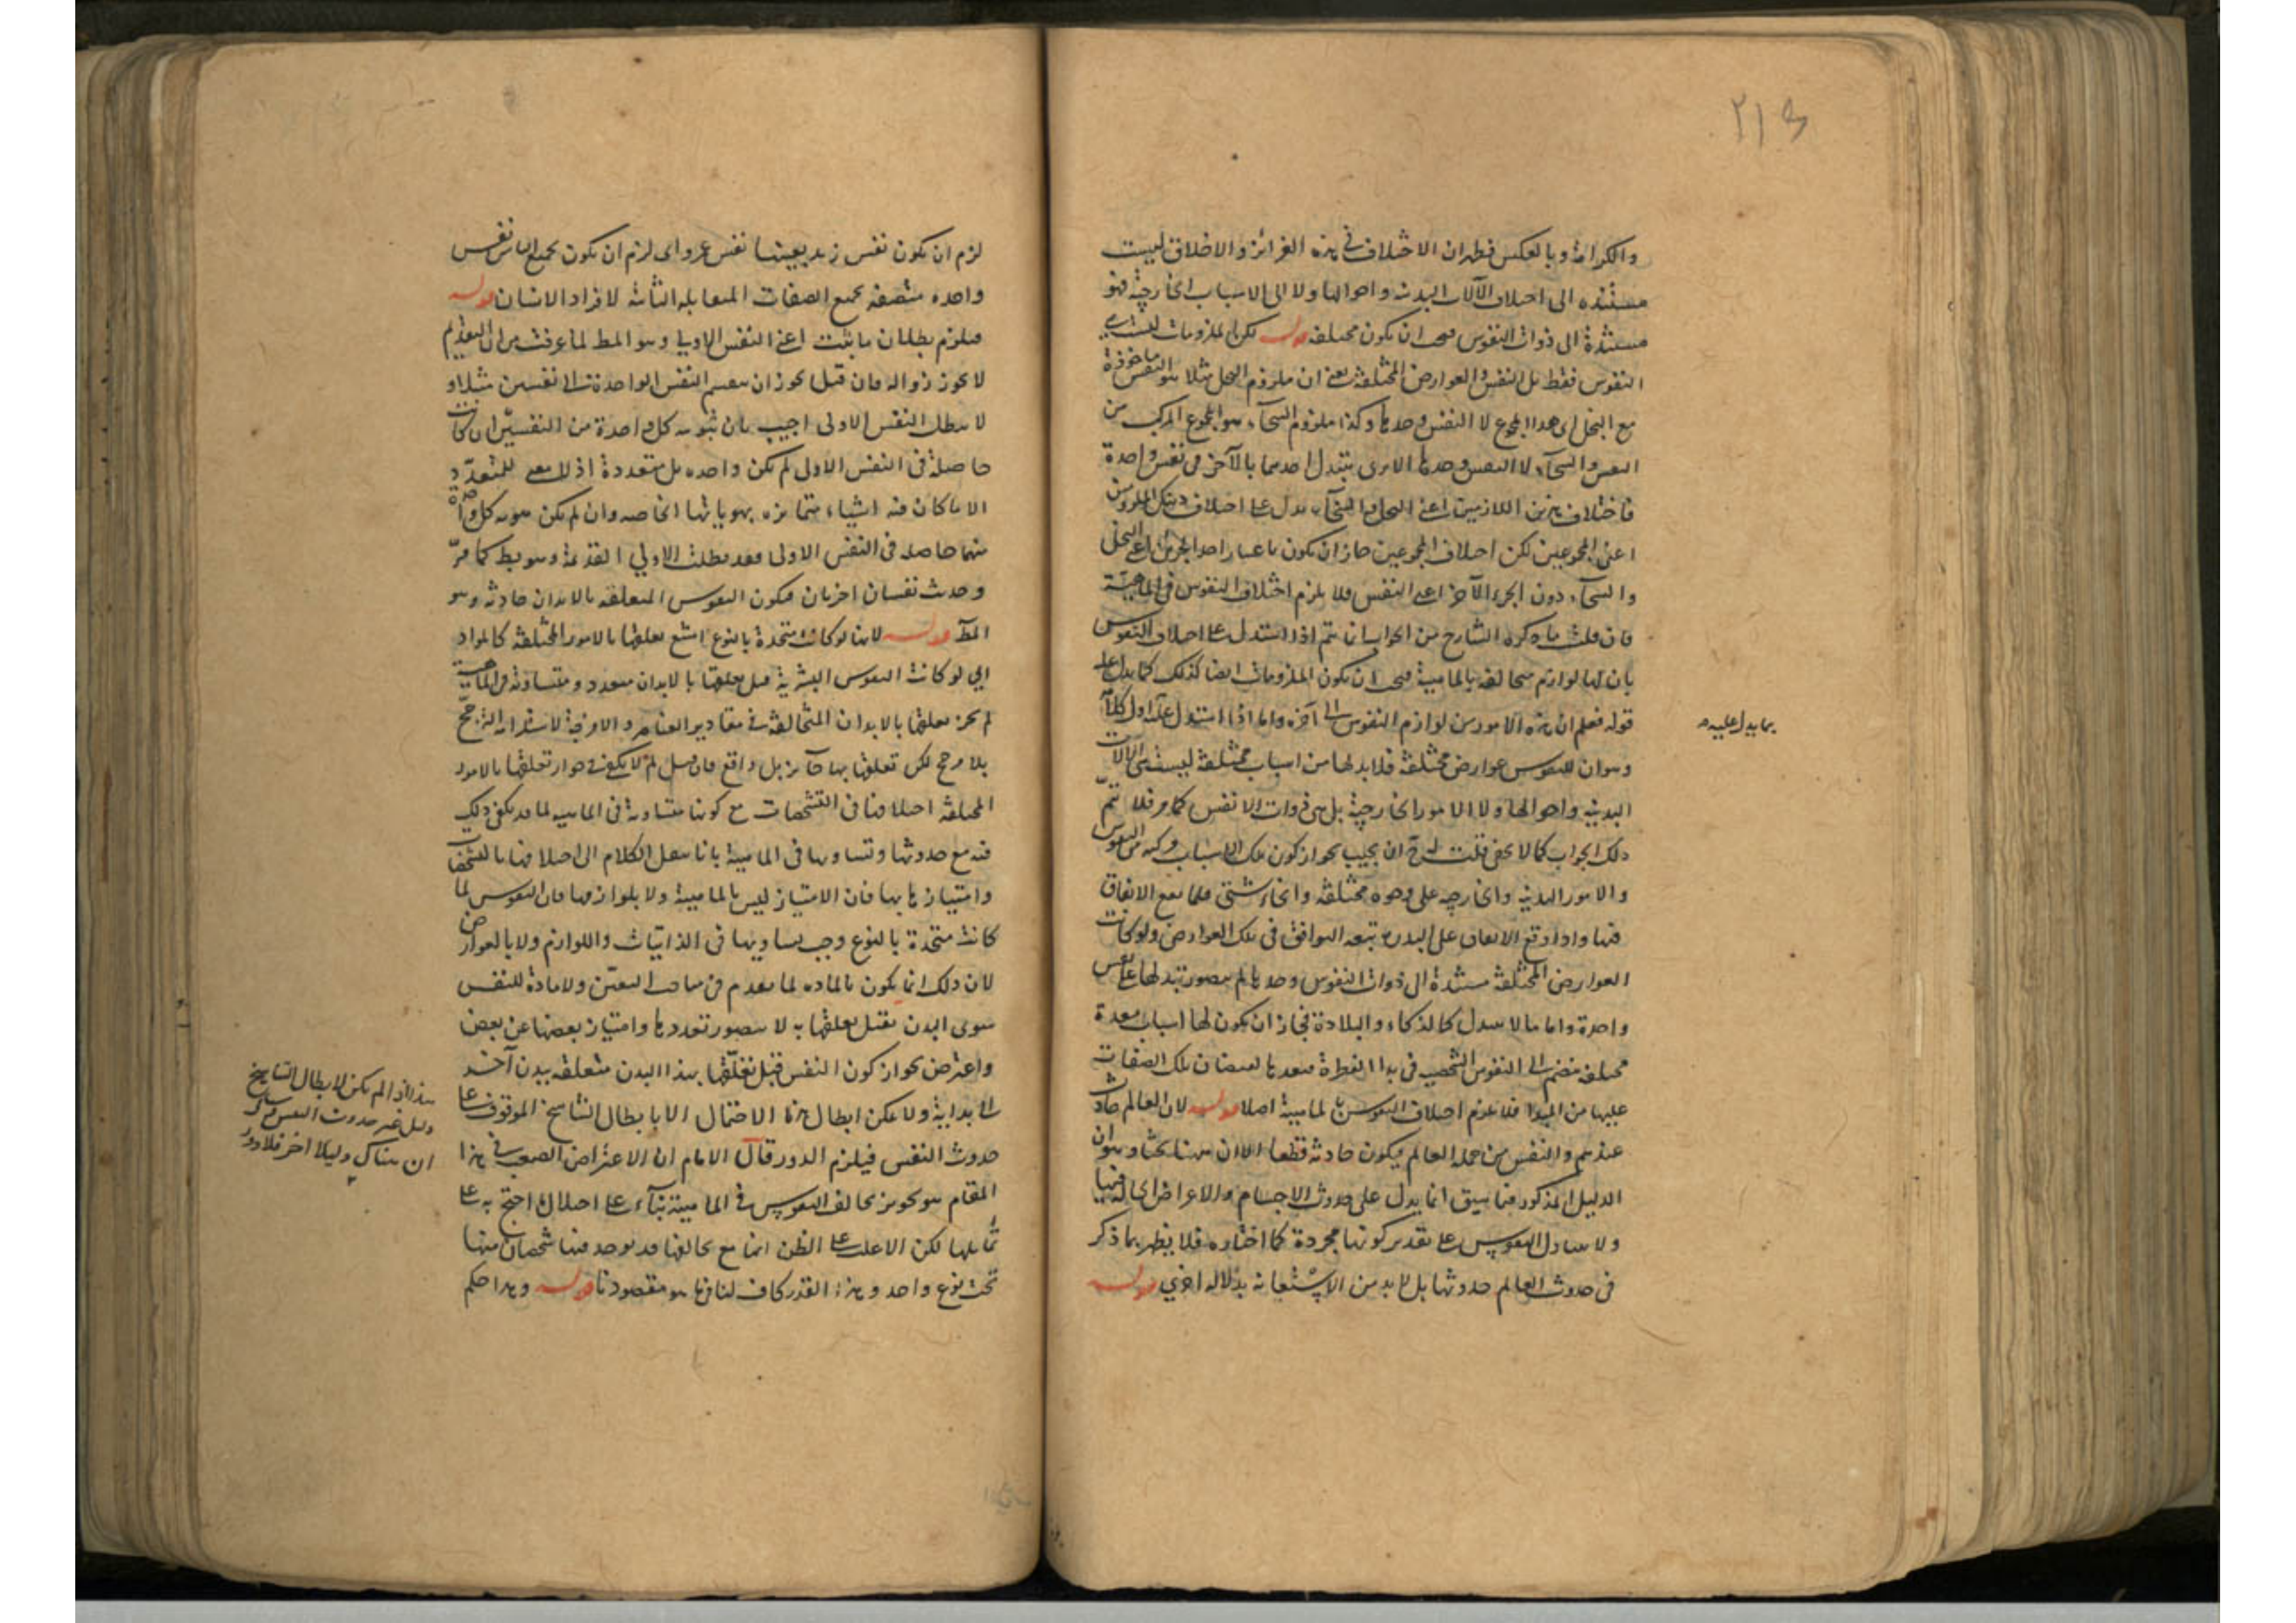 ٢١٣
والكرامة وبالعكس فظهر ان الاختلاف في هذه الغرائز والاخلاق ليست
مستنده الى اختلاف الآلات البدنيه واحوالها ولا الى الاسباب الخارجيه فهو
مستندة الى ذوات النفوس فيجب ان يكون مختلفه قوله لكن الملزومات ليست هي
النفوس فقط بل النفس والعوارض المختلفة يعنى ان ملزوم البخل مثلا هو النفس ماخوذة
مع البخل اى هذا المجموع لا النفس وحدها وكذا ملزوم السخاء هو المجموع المركب من
النفس والسخاء لا النفس وحدها الا يرى يتبدل احدهما بالآخر في نفس واحدة
فاختلاف هذين اللازمين اعنى البخل والسخاء يدل على اختلاف ذينك الملزومين
اعنى المجموعين لكن اختلاف المجموعين جاز ان يكون باعتبار احد الجزئين اعنى البخل
والسخاء دون الجزء الآخر اعنى النفس فلا يلزم اختلاف النفوس في الماهية
فان قلت ما ذكره الشارح من الجواب انما يتم اذا استدل على اختلاف النفوس
بان لها لوازم متخالفة بالماهية فيجب ان يكون الملزومات ايضا كذلك كما يدل عليه
قوله فعلم ان هذه الامور من لوازم النفوس الى آخره واما اذا استدل عليه اول كلامه
بما يدل عليه
وهو ان للنفوس عوارض مختلفة فلا بد لها من اسباب مختلفة ليست هي الآلات
البدنيه واحوالها ولا الامور الخارجية بل هي ذوات الانفس كما مر فلا يتم
ذلك الجواب كما لا يخفى قلت له ان يجيب بجواز كون تلك الاسباب مركبه من النفوس
والامور البدنيه والخارجيه على وجوه مختلفة وانحاء شتى فلما يقع الاتفاق
فيها واذا وقع الاتفاق على البدن تبعه التوافق في تلك العوارض ولو كانت
العوارض المختلفة مستندة الى ذوات النفوس وحدها لم يتصور تبدلها على نفس
واحدة واما ما لا يتبدل كالذكاء والبلادة فجاز ان يكون لها اسباب معدة
مختلفه منضم الى النفوس الشخصيه في بدء الفطرة فيعدها لفيضان تلك الصفات
عليها من المبدا فلا يلزم اختلاف النفوس بالماهية اصلا قوله لان العالم حادث
عندهم والنفس من جمله العالم فيكون حادثه قطعا الا ان ههنا بحثا وهو ان
الدليل المذكور فيما سبق انما يدل على حدوث الاجسام والاعراض الحالة فيها
ولا يتناول النفوس على تقدير كونها مجردة كما اختاره فلا يظهر بما ذكر
في حدوث العالم حدوثها بل لا بد من الاستعانه بدلاله اخرى قوله
لزم ان يكون نفس زيد بعينها نفس عمرو اى لزم ان يكون لجميع الناس نفس
واحده متصفه بجميع الصفات المتقابله الثابته لافراد الانسان قوله
فيلزم بطلان ما ثبت اعنى النفس الاولى وهو المط لما عرفت من ان القديم
لا يجوز زواله فان قيل يجوز ان ينقسم النفس الواحدة الى نفسين مثلا و
لا يبطل النفس الاولى اجيب بان هويه كل واحدة من النفسين ان كانت
حاصلة في النفس الاولى لم يكن واحده بل متعددة اذ لا معنى للمتعدد
الا ما كان فيه اشياء متمايزه بهوياتها الخاصه وان لم يكن هويه كل واحدة
منهما حاصله في النفس الاولى فقد بطلت الاولى القديمة وهو بط كما مر
وحدث نفسان اخريان فيكون النفوس المتعلقه بالابدان حادثه وهو
المط قوله لانها لو كانت متحدة بالنوع امتنع تعلقها بالامور المختلفة كالمواد
اى لو كانت النفوس البشرية قبل تعلقها بالابدان متعدده ومتساوية في الماهية
لم يجز تعلقها بالابدان المتخالفة في مقادير العناصر والامزجة لاستلزامه الترجيح
بلا مرجح لكن تعلقها بها جائز بل واقع فان قيل لم لا يكفى في جواز تعلقها بالامور
المختلفة اختلافها في التشخصات مع كونها متساويه في الماهيه لما قد يكفى ذلك
فيه مع حدوثها وتساويها في الماهية بانا ننقل الكلام الى اختلافها بالتشخصات
وامتيازها بها فان الامتياز ليس بالماهية ولا بلوازمها فان النفوس لما
كانت متحدة بالنوع وجب تساويها في الذاتيات واللوازم ولا بالعوارض
لان ذلك انما يكون بالماده لما تقدم في مباحث التعين ولا مادة للنفس
سوى البدن فقبل تعلقها به لا يتصور تعددها وامتياز بعضها عن بعض
واعترض بجواز كون النفس قبل تعلقها بهذا البدن متعلقه ببدن آخر
لا الى بداية ولا يمكن ابطال هذا الاحتمال الا بابطال التناسخ الموقوف على
حدوث النفس فيلزم الدور قال الامام ان الاعتراض الصعب في هذا
المقام هو تجويز تخالف النفوس في الماهية بناء على اختلال ما احتج به على
تماثلها لكن الاغلب على الظن انها مع تخالفها قد يوجد منها شخصان منها
تحت نوع واحد وهذا القدر كاف لنا فيما هو مقصودنا قوله وهذا حكم
هذا اذا لم يكن لابطال التناسخ
دليل غير حدوث النفس
ان هناك دليلا اخر فلا دور